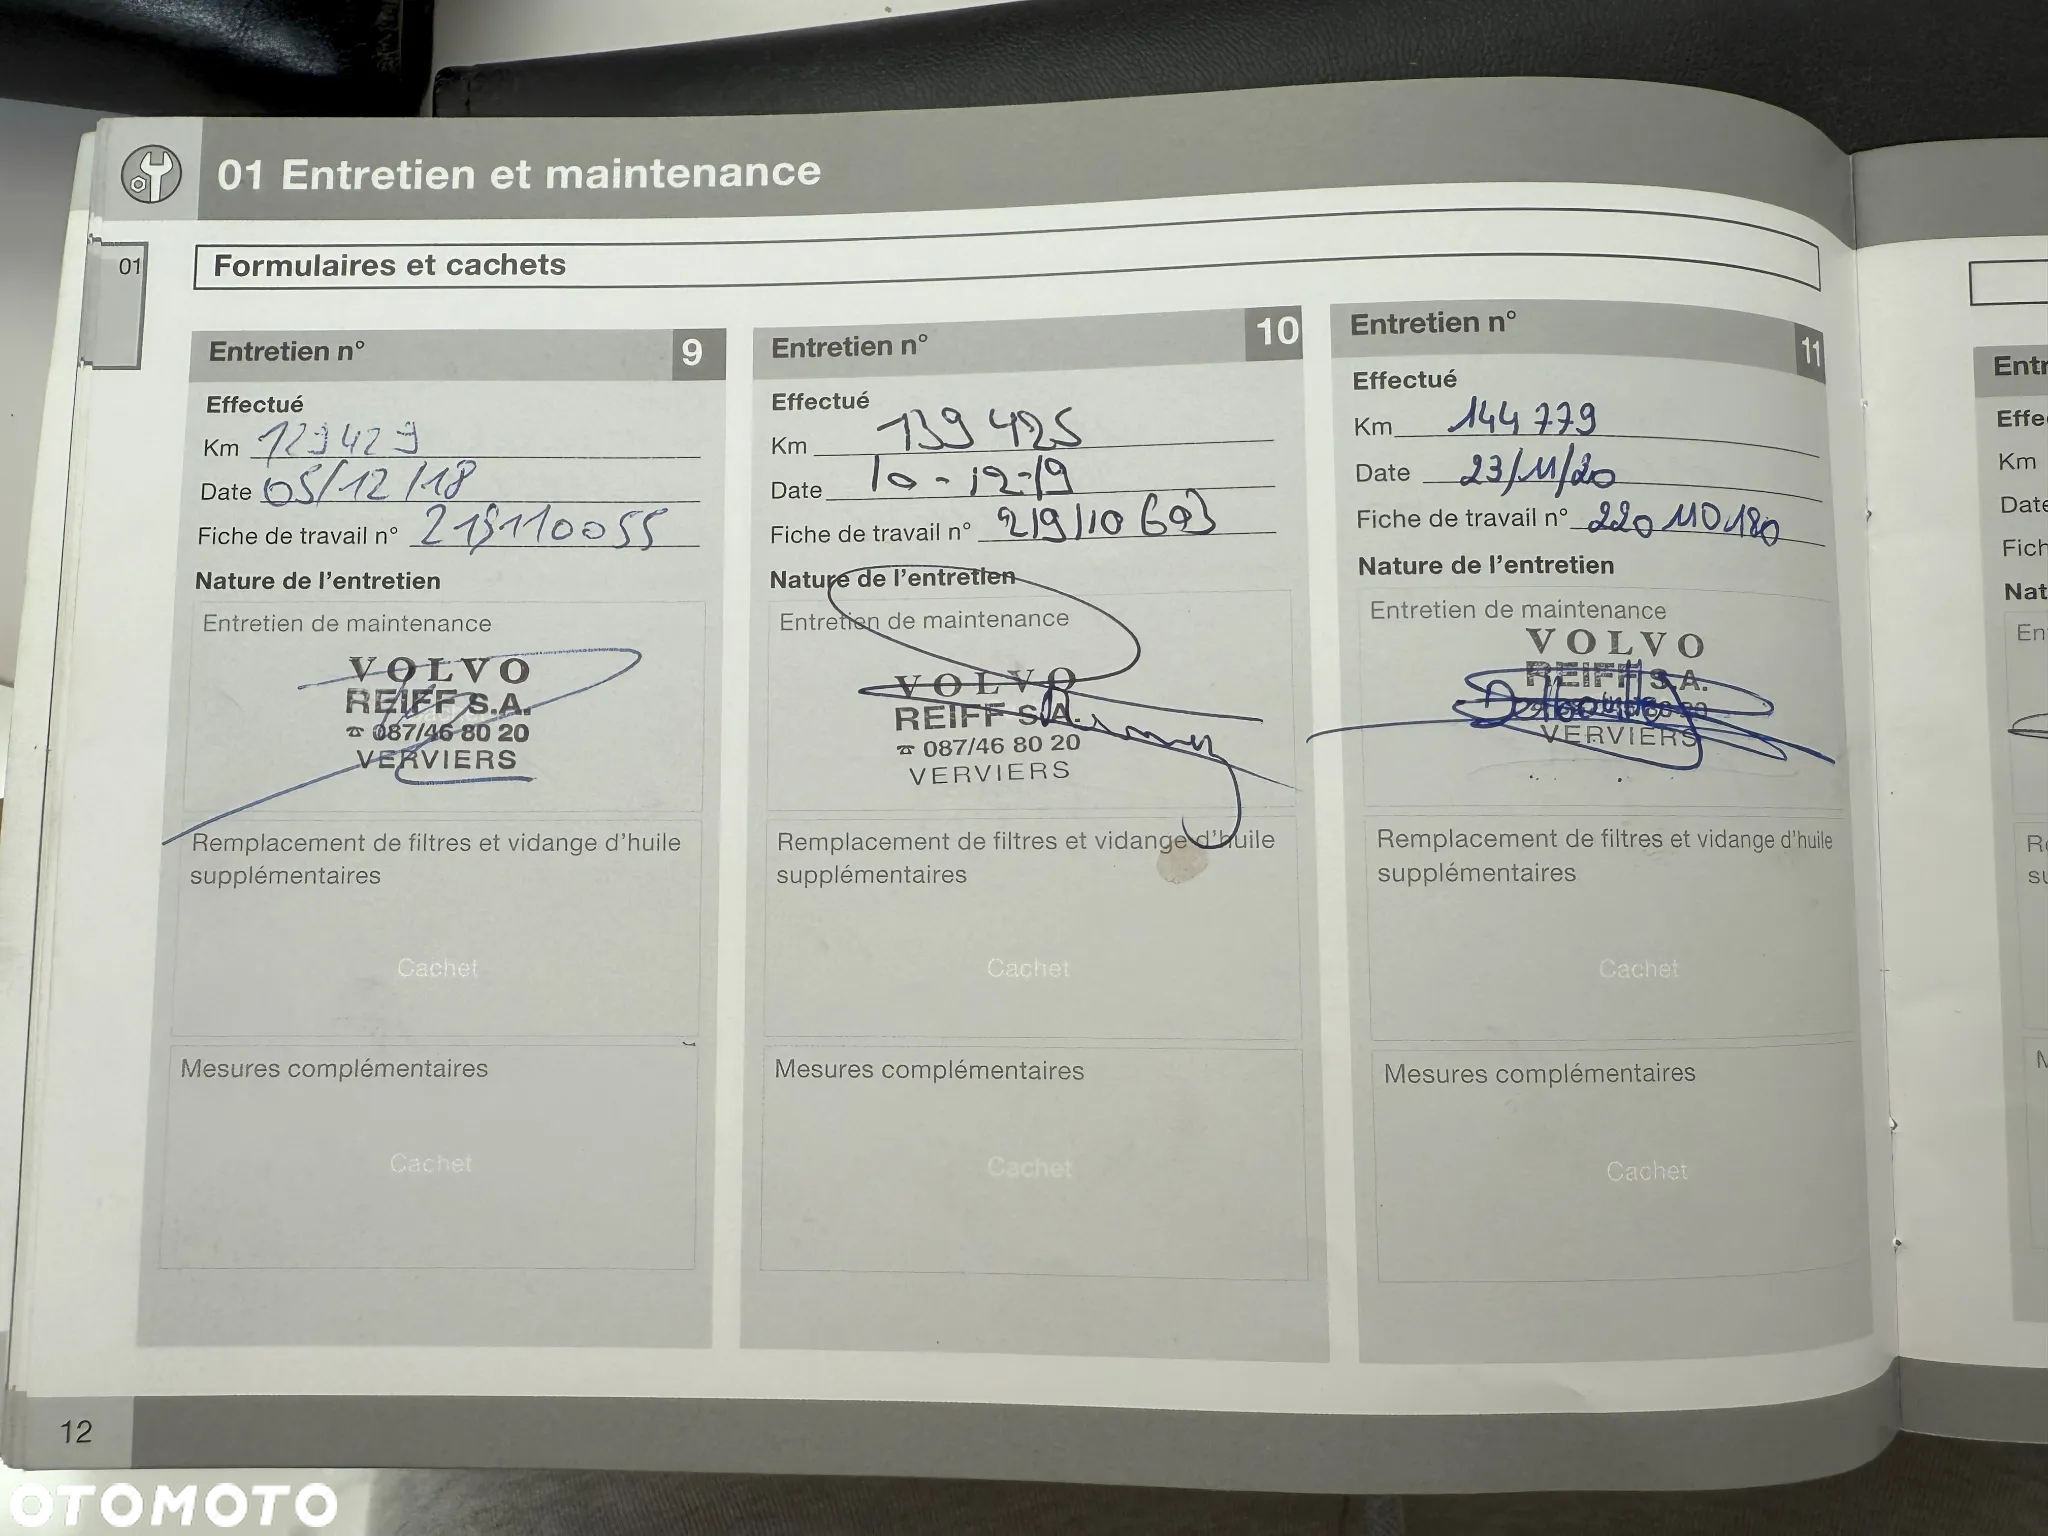 01 Entretien et maintenance
01
Formulaires et cachets
Entretien n° 9
Effectué
Km 129429
Date 05/12/18
Fiche de travail n° 218110055
Nature de l'entretien
Entretien de maintenance
VOLVO
REIFF S.A.
☎ 087/46 80 20
VERVIERS
Remplacement de filtres et vidange d'huile
supplémentaires
Cachet
Mesures complémentaires
Cachet
Entretien n° 10
Effectué
Km 139 425
Date 10-12-19
Fiche de travail n° 219110603
Nature de l'entretien
Entretien de maintenance
VOLVO
REIFF S.A.
☎ 087/46 80 20
VERVIERS
Remplacement de filtres et vidange d'huile
supplémentaires
Cachet
Mesures complémentaires
Cachet
Entretien n° 11
Effectué
Km 144 779
Date 23/11/20
Fiche de travail n° 220110180
Nature de l'entretien
Entretien de maintenance
VOLVO
REIFF S.A.
VERVIERS
Remplacement de filtres et vidange d'huile
supplémentaires
Cachet
Mesures complémentaires
Cachet
Entr
Effe
Km
Date
Fich
Nat
En
12
OTOMOTO